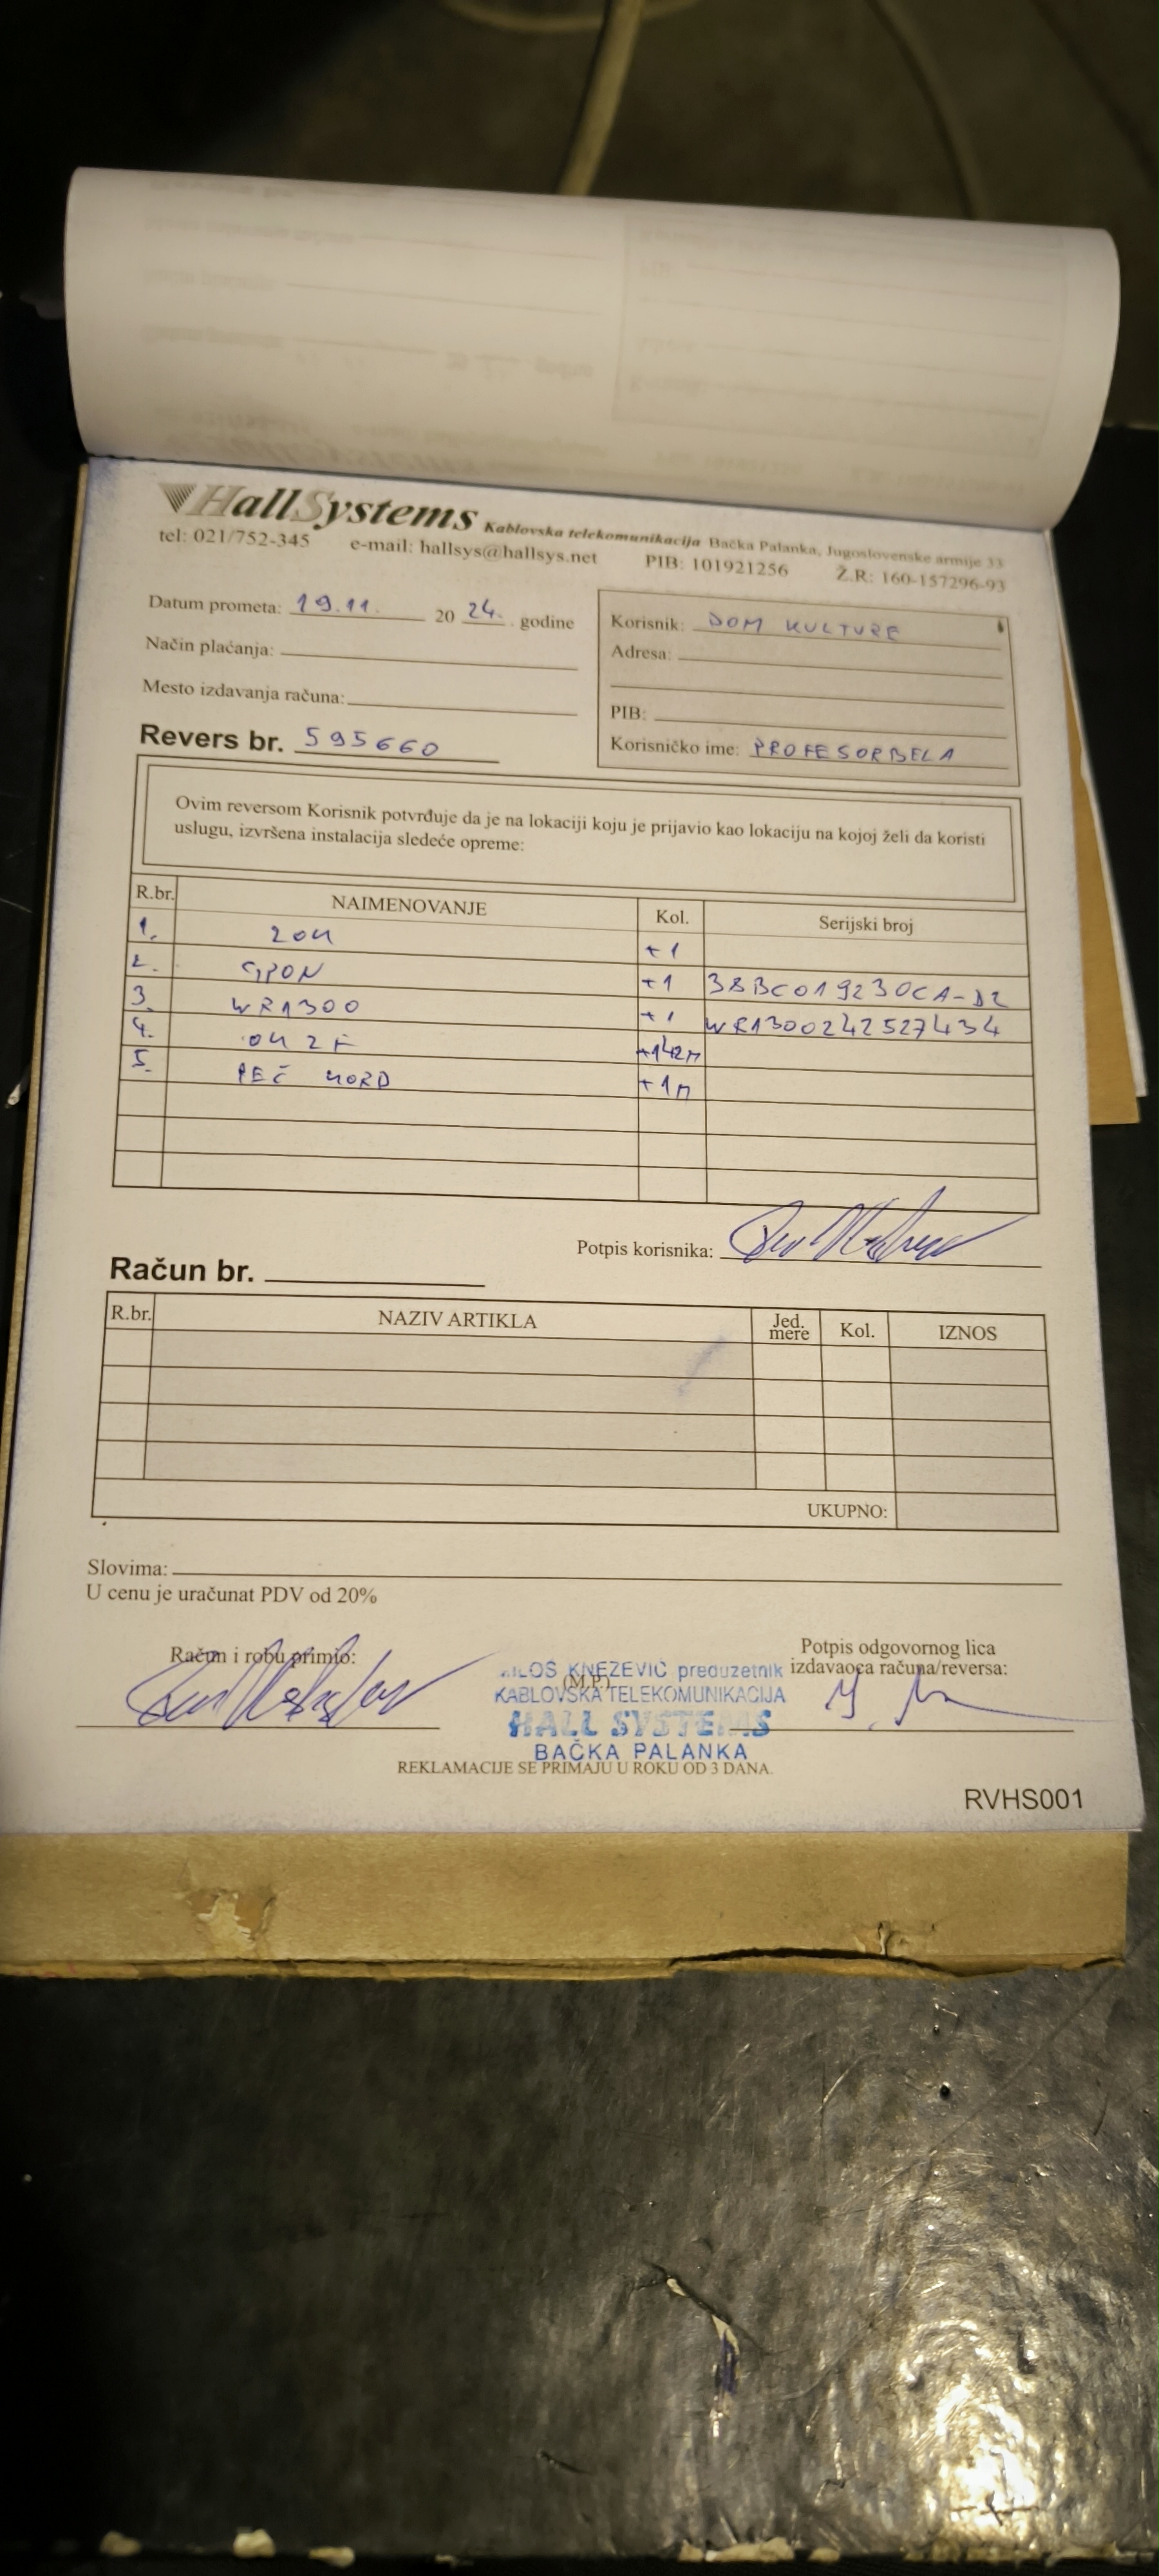 HallSystems Kablovska telekomunikacija Bačka Palanka, Jugoslovenske armije 33
tel: 021/752-345 e-mail: hallsys@hallsys.net PIB: 101921256 Ž.R: 160-157296-93
Datum prometa: 19.11. 20 24. godine
Način plaćanja:
Mesto izdavanja računa:
Korisnik: DOM KULTURE
Adresa:
PIB:
Korisničko ime: PROFESORBELA
Revers br. 595660
Ovim reversom Korisnik potvrđuje da je na lokaciji koju je prijavio kao lokaciju na kojoj želi da koristi
uslugu, izvršena instalacija sledeće opreme:
R.br. NAIMENOVANJE Kol. Serijski broj
1. ZOK +1
2. GPON +1 38BC019230CA-D2
3. WR1300 +1 WR1300242527434
4. OK 2F +142M
5. +1M
Potpis korisnika:
Račun br.
R.br. NAZIV ARTIKLA Jed. mere Kol. IZNOS
UKUPNO:
Slovima:
U cenu je uračunat PDV od 20%
Račun i robu primio:
(M.P.)
Potpis odgovornog lica
izdavaoca računa/reversa:
MILOŠ KNEŽEVIĆ preduzetnik
KABLOVSKA TELEKOMUNIKACIJA
HALL SYSTEMS
BAČKA PALANKA
REKLAMACIJE SE PRIMAJU U ROKU OD 3 DANA.
RVHS001